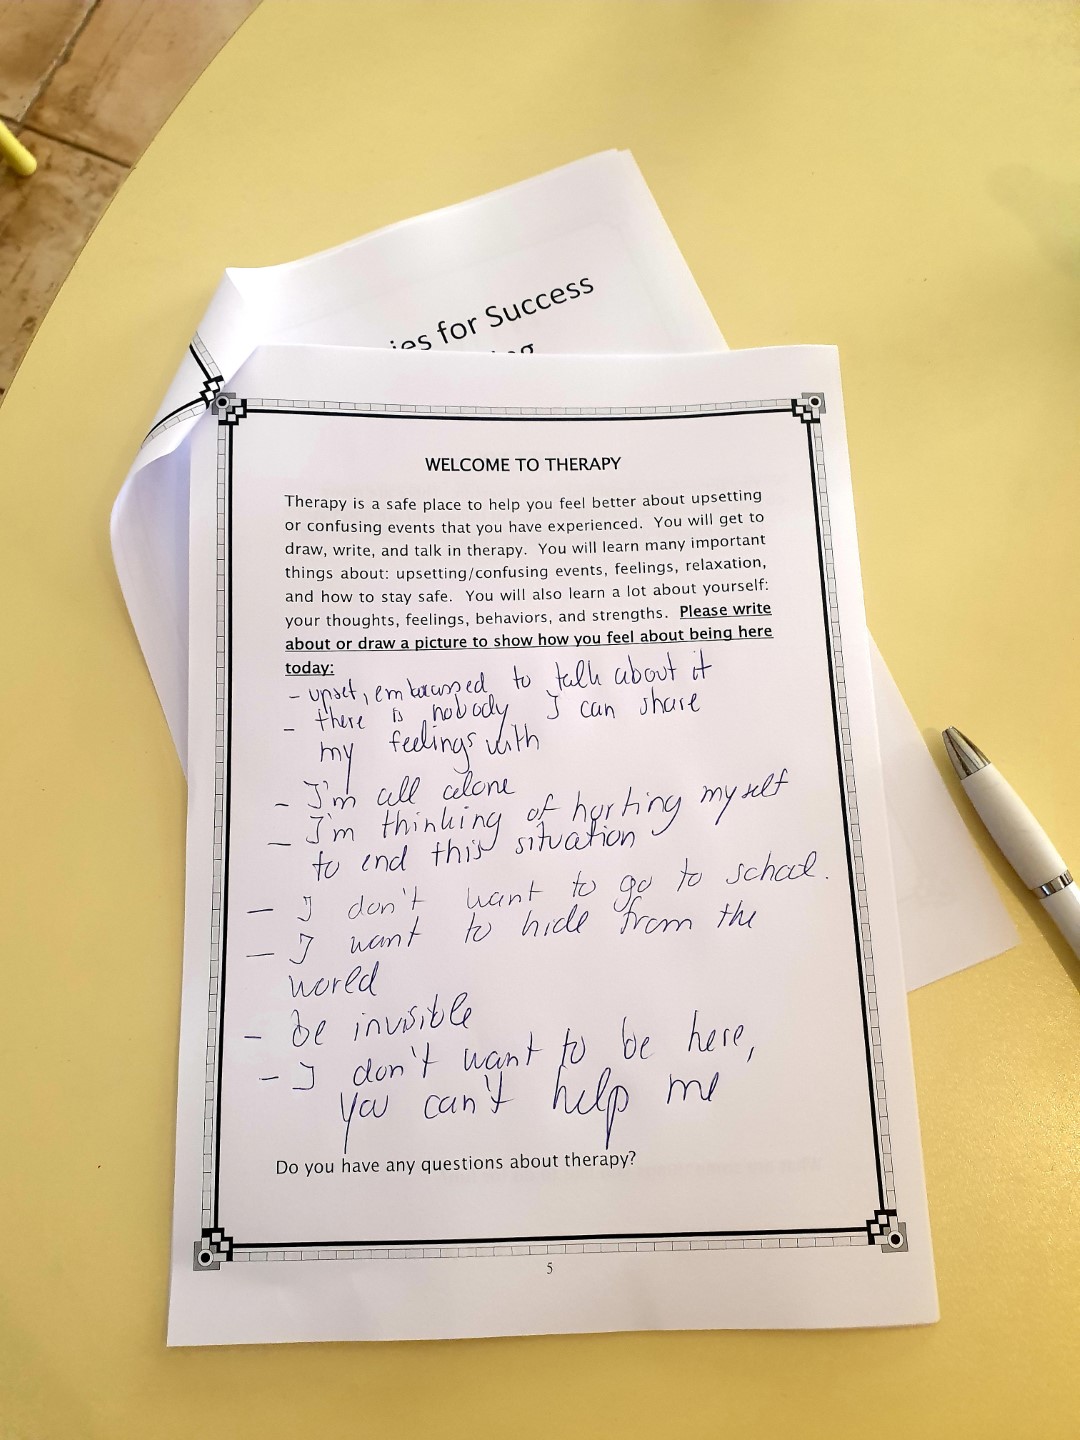 ies for Success
WELCOME TO THERAPY
Therapy is a safe place to help you feel better about upsetting
or confusing events that you have experienced. You will get to
draw, write, and talk in therapy. You will learn many important
things about: upsetting/confusing events, feelings, relaxation,
and how to stay safe. You will also learn a lot about yourself:
your thoughts, feelings, behaviors, and strengths. Please write
about or draw a picture to show how you feel about being here
today:
- upset, embarassed to talk about it
- there is nobody I can share
my feelings with
- I'm all alone
- I'm thinking of hurting myself
to end this situation
- I don't want to go to school.
- I want to hide from the
world
- be invisible
- I don't want to be here,
you can't help me
Do you have any questions about therapy?
5